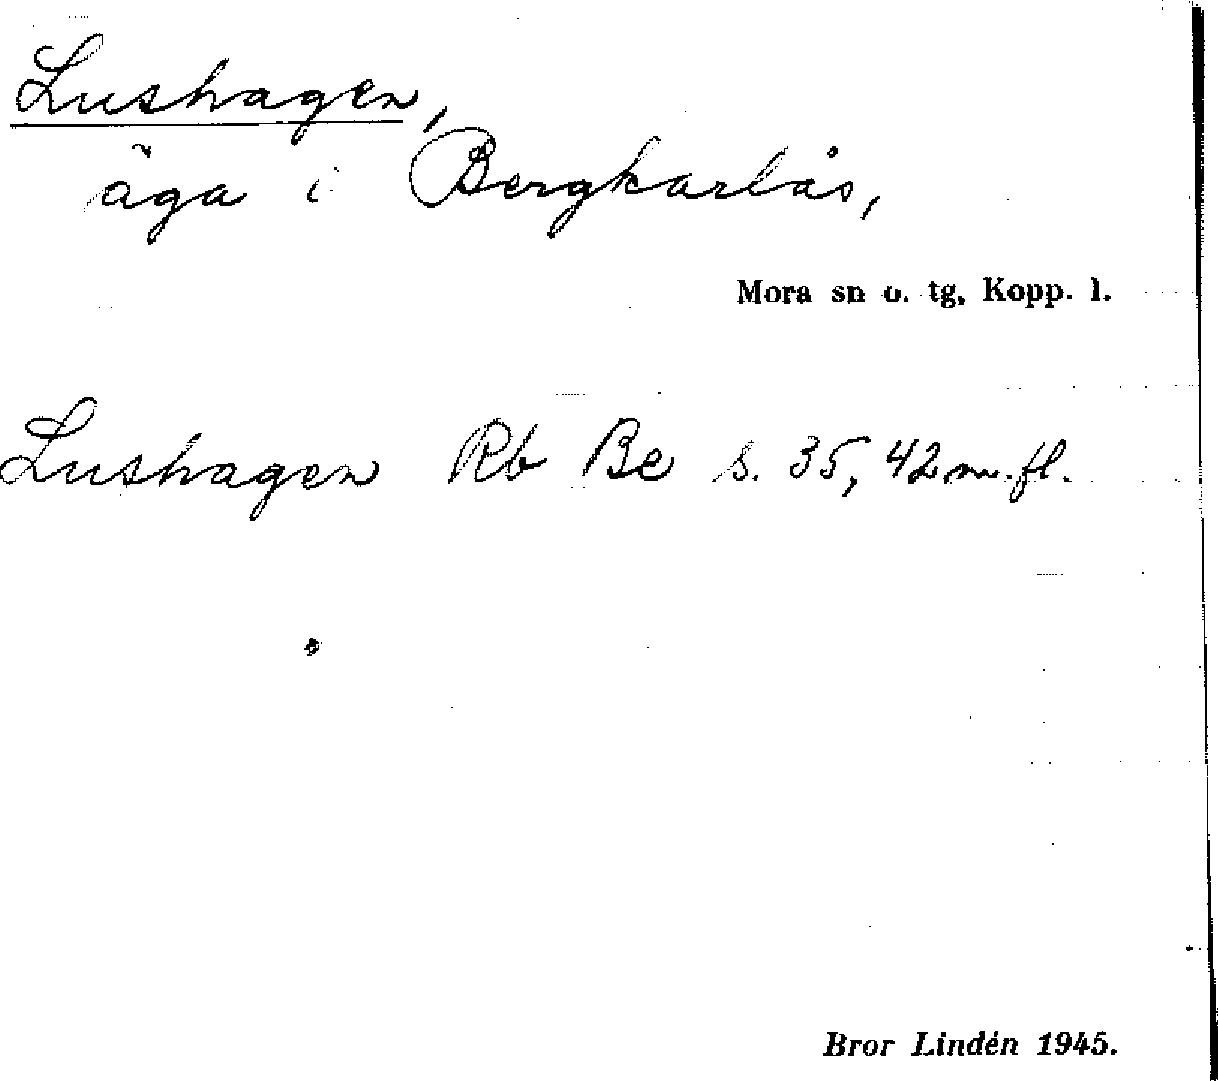 Lushagen,
äga i Bergkarlås,
Mora sn o. tg, Kopp. l.
Lushagen Rb Be s. 35, 42 m.fl.
Bror Lindén 1945.